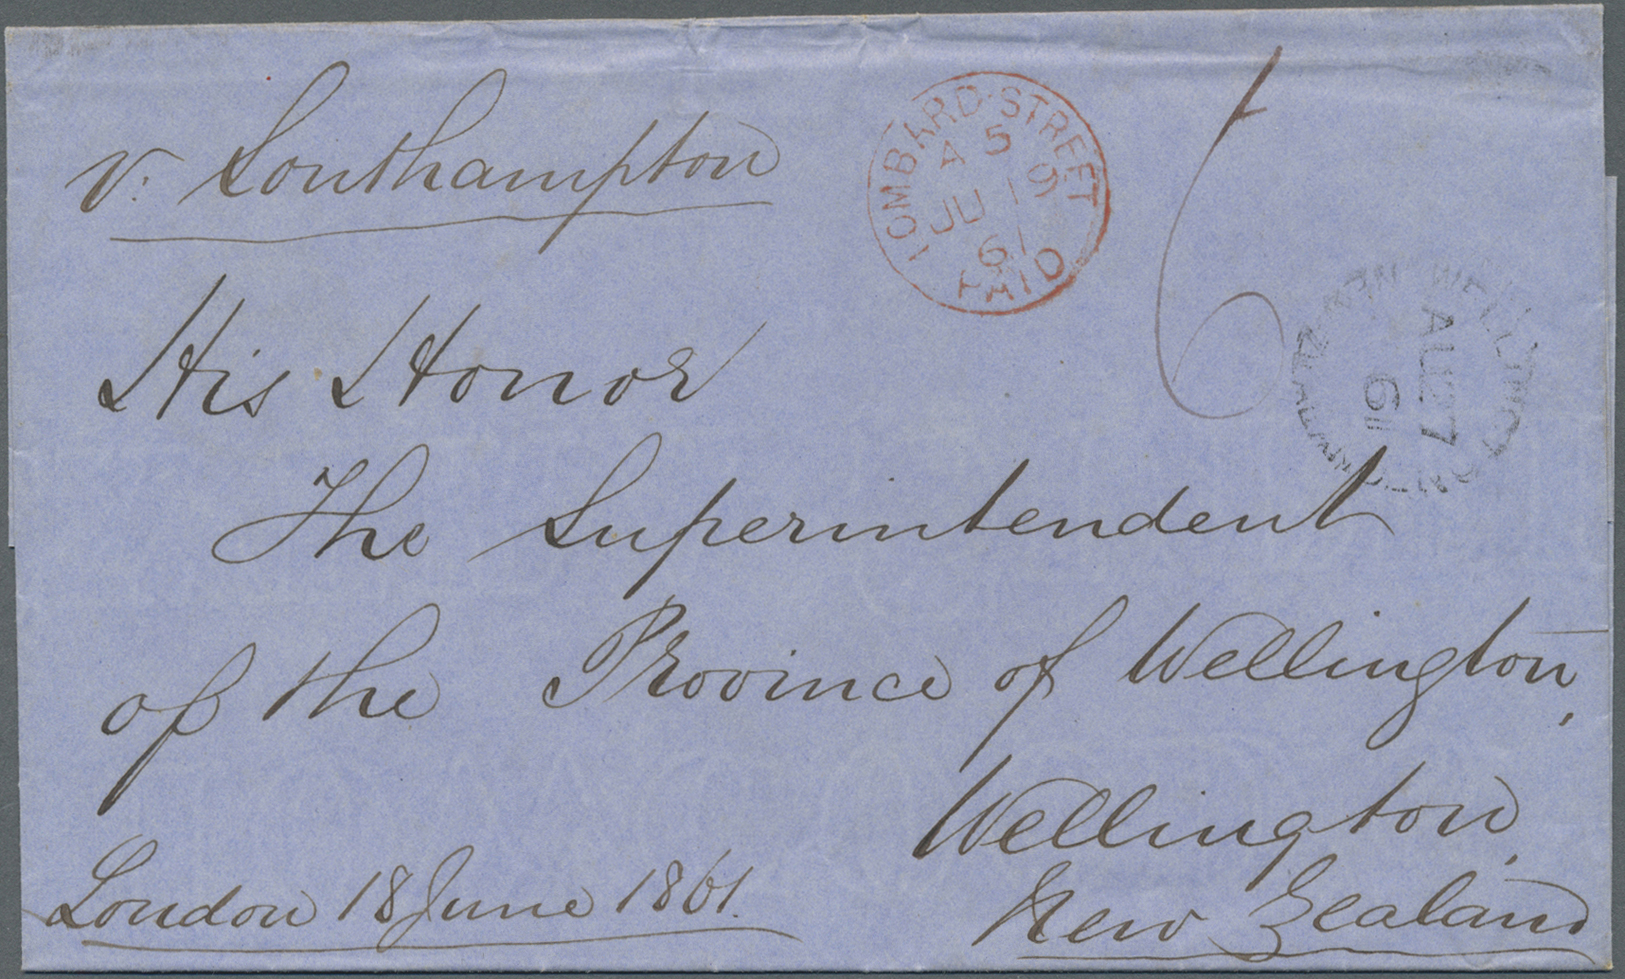 v. Southampton
LOMBARD STREET
A 5
JU 19
61
PAID
6
WELLINGTON
NEW ZEALAND
AU 27
61
His Honor
The Superintendent
of the Province of Wellington,
Wellington,
New Zealand
London 18 June 1861.